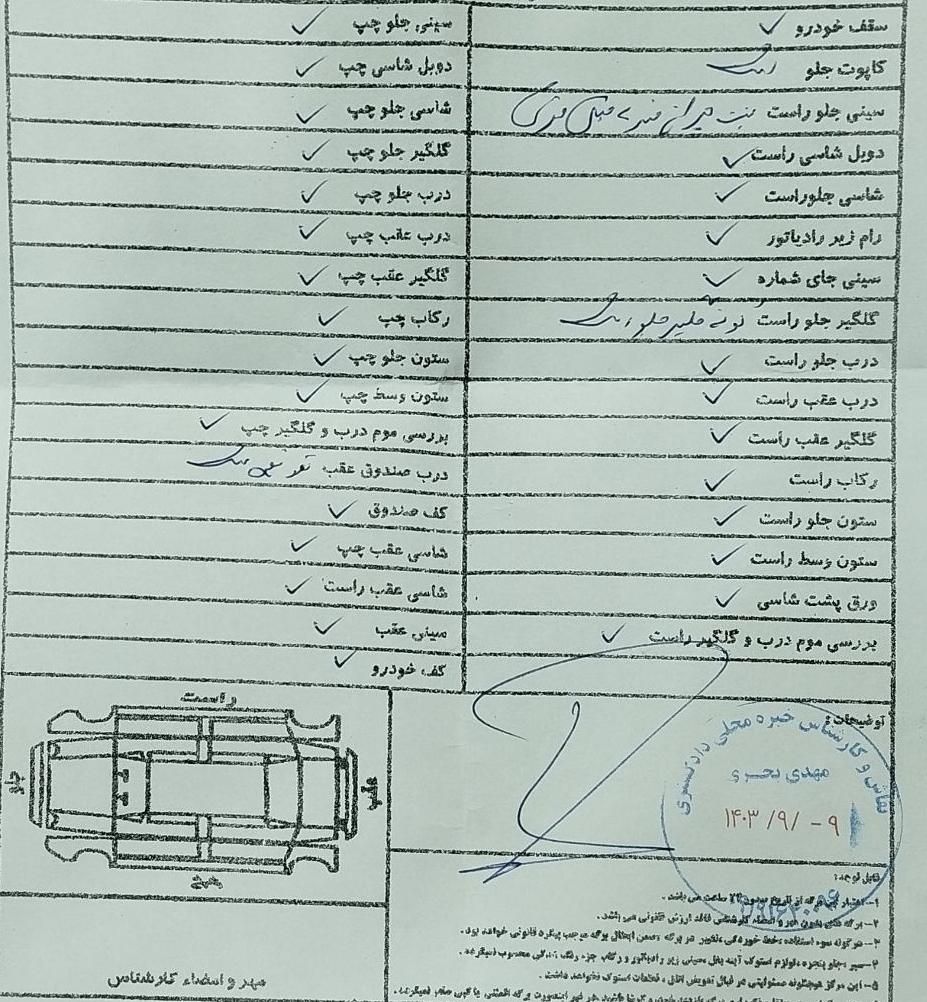 سقف خودرو ✓
کاپوت جلو رنگ
سینی جلو راست
دوبل شاسی راست ✓
شاسی جلو راست ✓
رام زیر رادیاتور ✓
سینی جای شماره ✓
گلگیر جلو راست گوشه گلگیر جلو رنگ
درب جلو راست ✓
درب عقب راست ✓
گلگیر عقب راست ✓
رکاب راست ✓
ستون جلو راست ✓
ستون وسط راست ✓
ورق پشت شاسی ✓
بررسی موم درب و گلگیر راست ✓
سینی جلو چپ ✓
دوبل شاسی چپ ✓
شاسی جلو چپ ✓
گلگیر جلو چپ ✓
درب جلو چپ ✓
درب عقب چپ ✓
گلگیر عقب چپ ✓
رکاب چپ ✓
ستون جلو چپ ✓
ستون وسط چپ ✓
بررسی موم درب و گلگیر چپ ✓
درب صندوق عقب
کف صندوق ✓
شاسی عقب چپ ✓
شاسی عقب راست ✓
سینی عقب ✓
کف خودرو ✓
توضیحات:
نقاش و کارشناس خبره محلی دادگستری
مهدی بحری
۱۴۰۳ /۹/ -۹
راست
جلو
عقب
چپ
قابل توجه:
۱-اعتبار این برگه از تاریخ صدور ساعت می باشد.
۲-برگه های بدون مهر و امضاء کارشناس فاقد ارزش قانونی می باشد.
۳-هر گونه سوء استفاده، خط خوردگی، تغییر در برگه موجب پیگرد قانونی خواهد بود.
۵-این مرکز هیچگونه مسئولیتی در قبال تعویض اتاق، قطعات استوک نخواهد داشت.
مهر و امضاء کارشناس